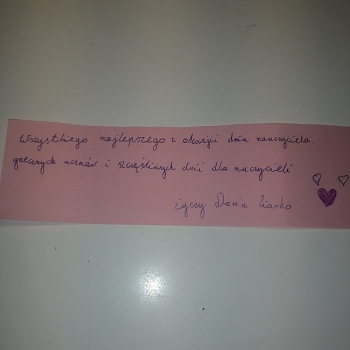 Wszystkiego najlepszego z okazji dnia nauczyciela.
grzecznych uczniów i szczęśliwych dni dla nauczycieli
życzy Daria